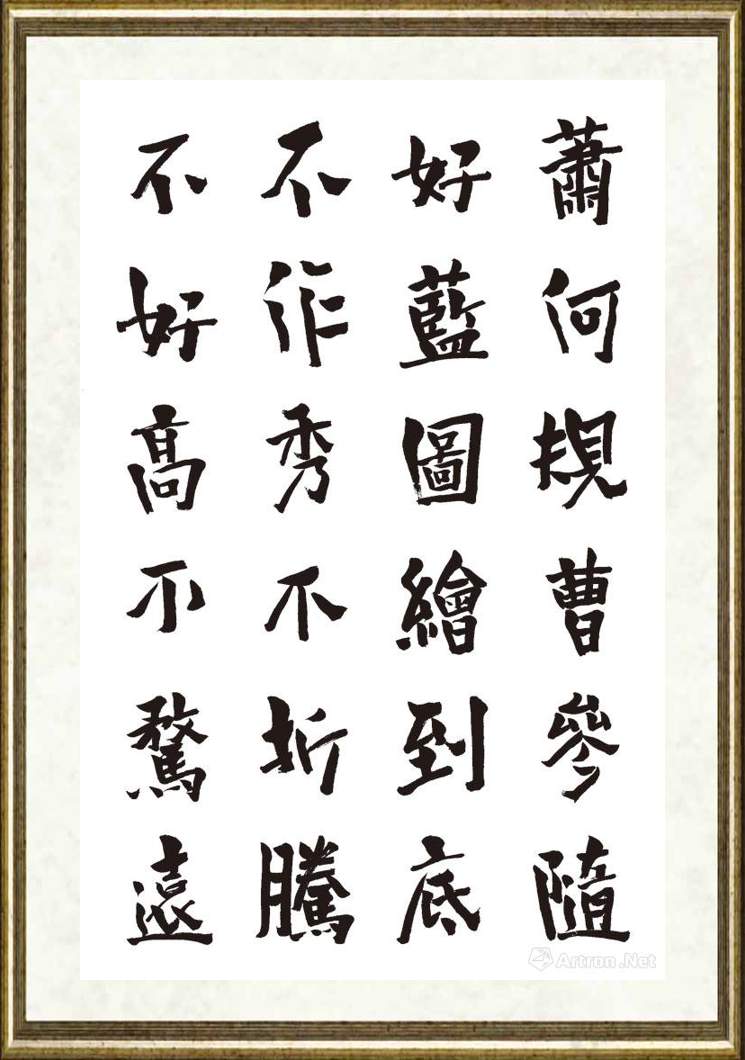 蕭何規曹參隨
好藍圖繪到底
不作秀不折騰
不好高不騖遠
Artron.Net